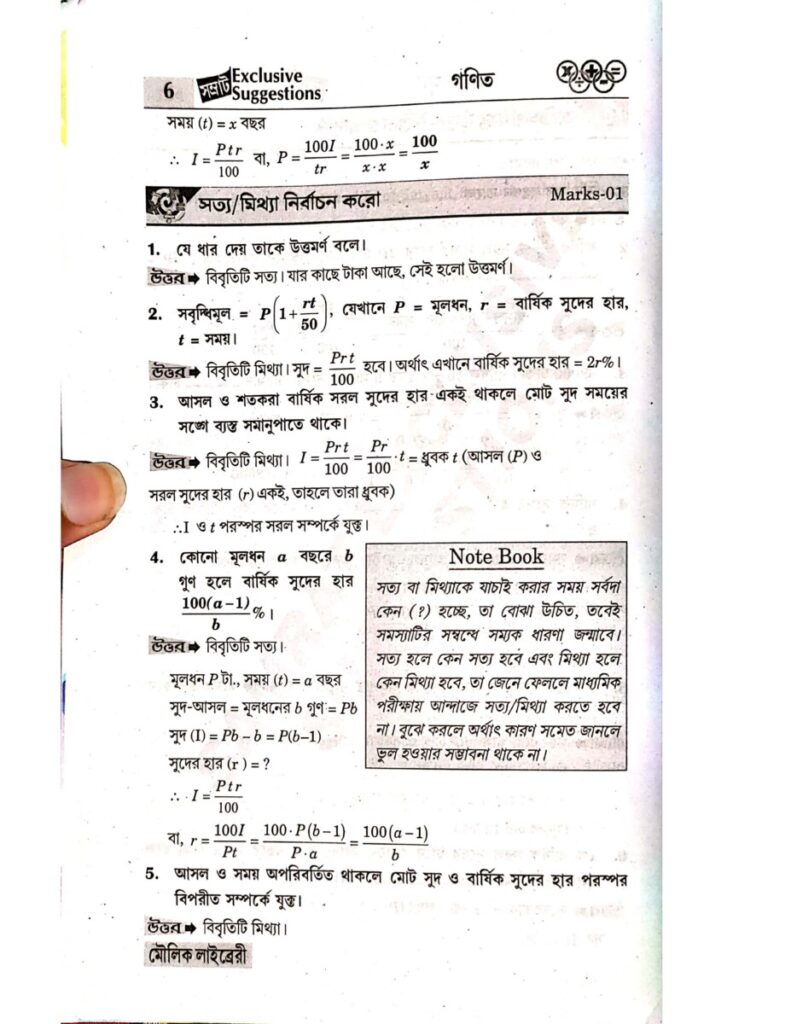 6 সম্রাট Exclusive Suggestions গণিত
সময় (t) = x বছর
∴ I = Ptr/100 বা, P = 100I/tr = 100·x/x·x = 100/x
সত্য/মিথ্যা নির্বাচন করো Marks-01
1. যে ধার দেয় তাকে উত্তমর্ণ বলে।
উত্তর ➡ বিবৃতিটি সত্য। যার কাছে টাকা আছে, সেই হলো উত্তমর্ণ।
2. সবৃদ্ধিমূল = P(1+rt/50), যেখানে P = মূলধন, r = বার্ষিক সুদের হার,
t = সময়।
উত্তর ➡ বিবৃতিটি মিথ্যা। সুদ = Prt/100 হবে। অর্থাৎ এখানে বার্ষিক সুদের হার = 2r%।
3. আসল ও শতকরা বার্ষিক সরল সুদের হার একই থাকলে মোট সুদ সময়ের
সঙ্গে ব্যস্ত সমানুপাতে থাকে।
উত্তর ➡ বিবৃতিটি মিথ্যা। I = Prt/100 = Pr/100 · t = ধ্রুবক t (আসল (P) ও
সরল সুদের হার (r) একই, তাহলে তারা ধ্রুবক)
∴I ও t পরস্পর সরল সম্পর্কে যুক্ত।
4. কোনো মূলধন a বছরে b
গুণ হলে বার্ষিক সুদের হার
100(a−1)/b %।
উত্তর ➡ বিবৃতিটি সত্য।
মূলধন P টা., সময় (t) = a বছর
সুদ-আসল = মূলধনের b গুণ = Pb
সুদ (I) = Pb − b = P(b−1)
সুদের হার (r) = ?
∴ I = Ptr/100
বা, r = 100I/Pt = 100·P(b−1)/P·a = 100(a−1)/b
Note Book
সত্য বা মিথ্যাকে যাচাই করার সময় সর্বদা
কেন (?) হচ্ছে, তা বোঝা উচিত, তবেই
সমস্যাটির সম্বন্ধে সম্যক ধারণা জন্মাবে।
সত্য হলে কেন সত্য হবে এবং মিথ্যা হলে
কেন মিথ্যা হবে, তা জেনে ফেললে মাধ্যমিক
পরীক্ষায় আন্দাজে সত্য/মিথ্যা করতে হবে
না। বুঝে করলে অর্থাৎ কারণ সমেত জানলে
ভুল হওয়ার সম্ভাবনা থাকে না।
5. আসল ও সময় অপরিবর্তিত থাকলে মোট সুদ ও বার্ষিক সুদের হার পরস্পর
বিপরীত সম্পর্কে যুক্ত।
উত্তর ➡ বিবৃতিটি মিথ্যা।
মৌলিক লাইব্রেরী